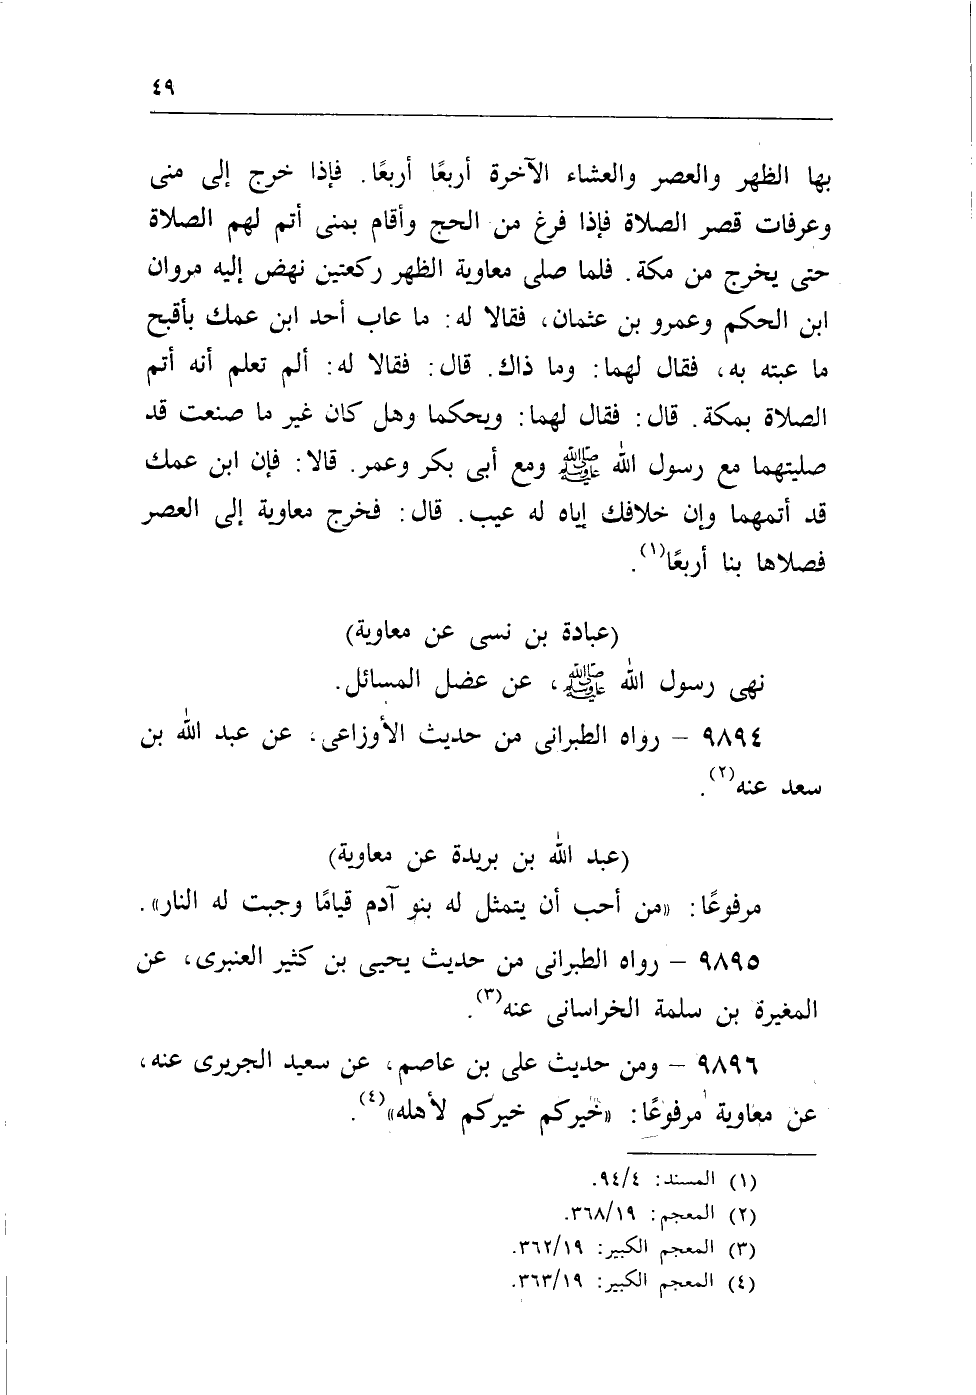 ٤٩
بها الظهر والعصر والعشاء الآخرة أربعًا أربعًا. فإذا خرج إلى منى
وعرفات قصر الصلاة فإذا فرغ من الحج وأقام بمنى أتم لهم الصلاة
حتى يخرج من مكة. فلما صلى معاوية الظهر ركعتين نهض إليه مروان
ابن الحكم وعمرو بن عثمان، فقالا له: ما عاب أحد ابن عمك بأقبح
ما عبته به، فقال لهما: وما ذاك. قال: فقالا له: ألم تعلم أنه أتم
الصلاة بمكة. قال: فقال لهما: ويحكما وهل كان غير ما صنعت قد
صليتهما مع رسول الله ﷺ ومع أبى بكر وعمر. قالا: فإن ابن عمك
قد أتمهما وإن خلافك إياه له عيب. قال: فخرج معاوية إلى العصر
فصلاها بنا أربعًا(١).
(عبادة بن نسى عن معاوية)
نهى رسول الله ﷺ، عن عضل المسائل.
٩٨٩٤ - رواه الطبرانى من حديث الأوزاعى، عن عبد الله بن
سعد عنه(٢).
(عبد الله بن بريدة عن معاوية)
مرفوعًا: «من أحب أن يتمثل له بنو آدم قيامًا وجبت له النار».
٩٨٩٥ - رواه الطبرانى من حديث يحيى بن كثير العنبرى، عن
المغيرة بن سلمة الخراسانى عنه(٣).
٩٨٩٦ - ومن حديث على بن عاصم، عن سعيد الجريرى عنه،
عن معاوية مرفوعًا: «خيركم خيركم لأهله»(٤).
(١) المسند: ٩٤/٤.
(٢) المعجم: ٣٦٨/١٩.
(٣) المعجم الكبير: ٣٦٢/١٩.
(٤) المعجم الكبير: ٣٦٣/١٩.